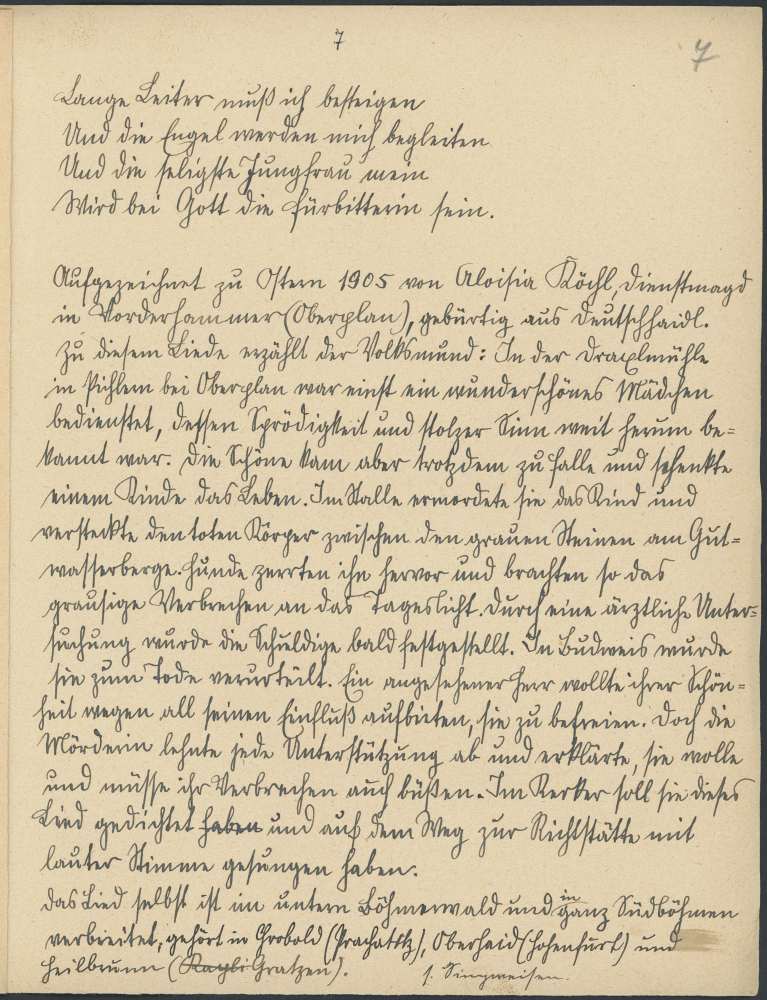 7
7
Lange Leiter muß ich besteigen
Und die Engel werden mich begleiten
Und die seligste Jungfrau mein
Wird bei Gott die Fürbitterin sein.
Aufgezeichnet zu Ostern 1905 von Aloisia Köchl, Dienstmagd
in Vorderhammer (Oberplan), gebürtig aus Deutschhaidl.
Zu diesem Liede erzählt der Volksmund: In der Draxlmühle
in Pichlern bei Oberplan war einst ein wunderschönes Mädchen
bedienstet, dessen Sprödigkeit und stolzer Sinn weit herum be=
kannt war. Die Schöne kam aber trotzdem zu Falle und schenkte
einem Kinde das Leben. Im Stalle ermordete sie das Kind und
versteckte den toten Körper zwischen den grauen Steinen am Gut=
wasserberge. Hunde zerrten ihn hervor und brachten so das
grausige Verbrechen an das Tageslicht. Durch eine ärztliche Unter=
suchung wurde die Schuldige bald festgestellt. In Budweis wurde
sie zum Tode verurteilt. Ein angesehener Herr wollte ihrer Schön=
heit wegen all seinen Einfluß aufbieten, sie zu befreien. Doch die
Mörderin lehnte jede Unterstützung ab und erklärte, sie wolle
und müsse ihr Verbrechen auch büßen. Im Kerker soll sie dieses
Lied gedichtet haben und auf dem Weg zur Richtstätte mit
lauter Stimme gesungen haben.
Das Lied selbst ist im untern Böhmerwald und in ganz Südböhmen
verbreitet, gehört in Grobold (Prachatitz), Oberhaid (Hohenfurt) und
Heilbrunn (Gratzen). s. Singweisen.